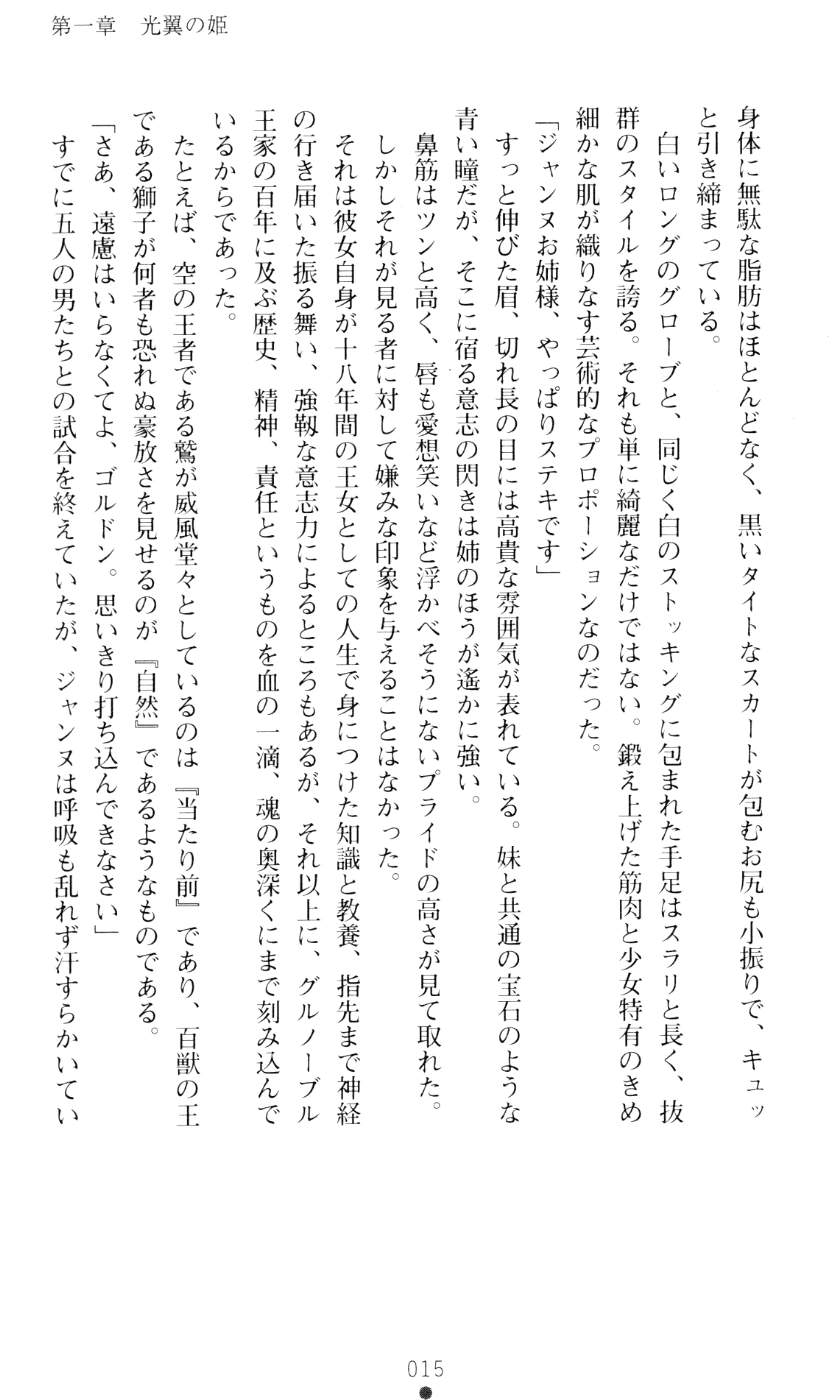 第一章　光翼の姫
身体に無駄な脂肪はほとんどなく、黒いタイトなスカートが包むお尻も小振りで、キュッ
と引き締まっている。
白いロングのグローブと、同じく白のストッキングに包まれた手足はスラリと長く、抜
群のスタイルを誇る。それも単に綺麗なだけではない。鍛え上げた筋肉と少女特有のきめ
細かな肌が織りなす芸術的なプロポーションなのだった。
「ジャンヌお姉様、やっぱりステキです」
すっと伸びた眉、切れ長の目には高貴な雰囲気が表れている。妹と共通の宝石のような
青い瞳だが、そこに宿る意志の閃きは姉のほうが遙かに強い。
鼻筋はツンと高く、唇も愛想笑いなど浮かべそうにないプライドの高さが見て取れた。
しかしそれが見る者に対して嫌みな印象を与えることはなかった。
それは彼女自身が十八年間の王女としての人生で身につけた知識と教養、指先まで神経
の行き届いた振る舞い、強靱な意志力によるところもあるが、それ以上に、グルノーブル
王家の百年に及ぶ歴史、精神、責任というものを血の一滴、魂の奥深くにまで刻み込んで
いるからであった。
たとえば、空の王者である鷲が威風堂々としているのは『当たり前』であり、百獣の王
である獅子が何者も恐れぬ豪放さを見せるのが『自然』であるようなものである。
「さあ、遠慮はいらなくてよ、ゴルドン。思いきり打ち込んできなさい」
すでに五人の男たちとの試合を終えていたが、ジャンヌは呼吸も乱れず汗すらかいてい
015